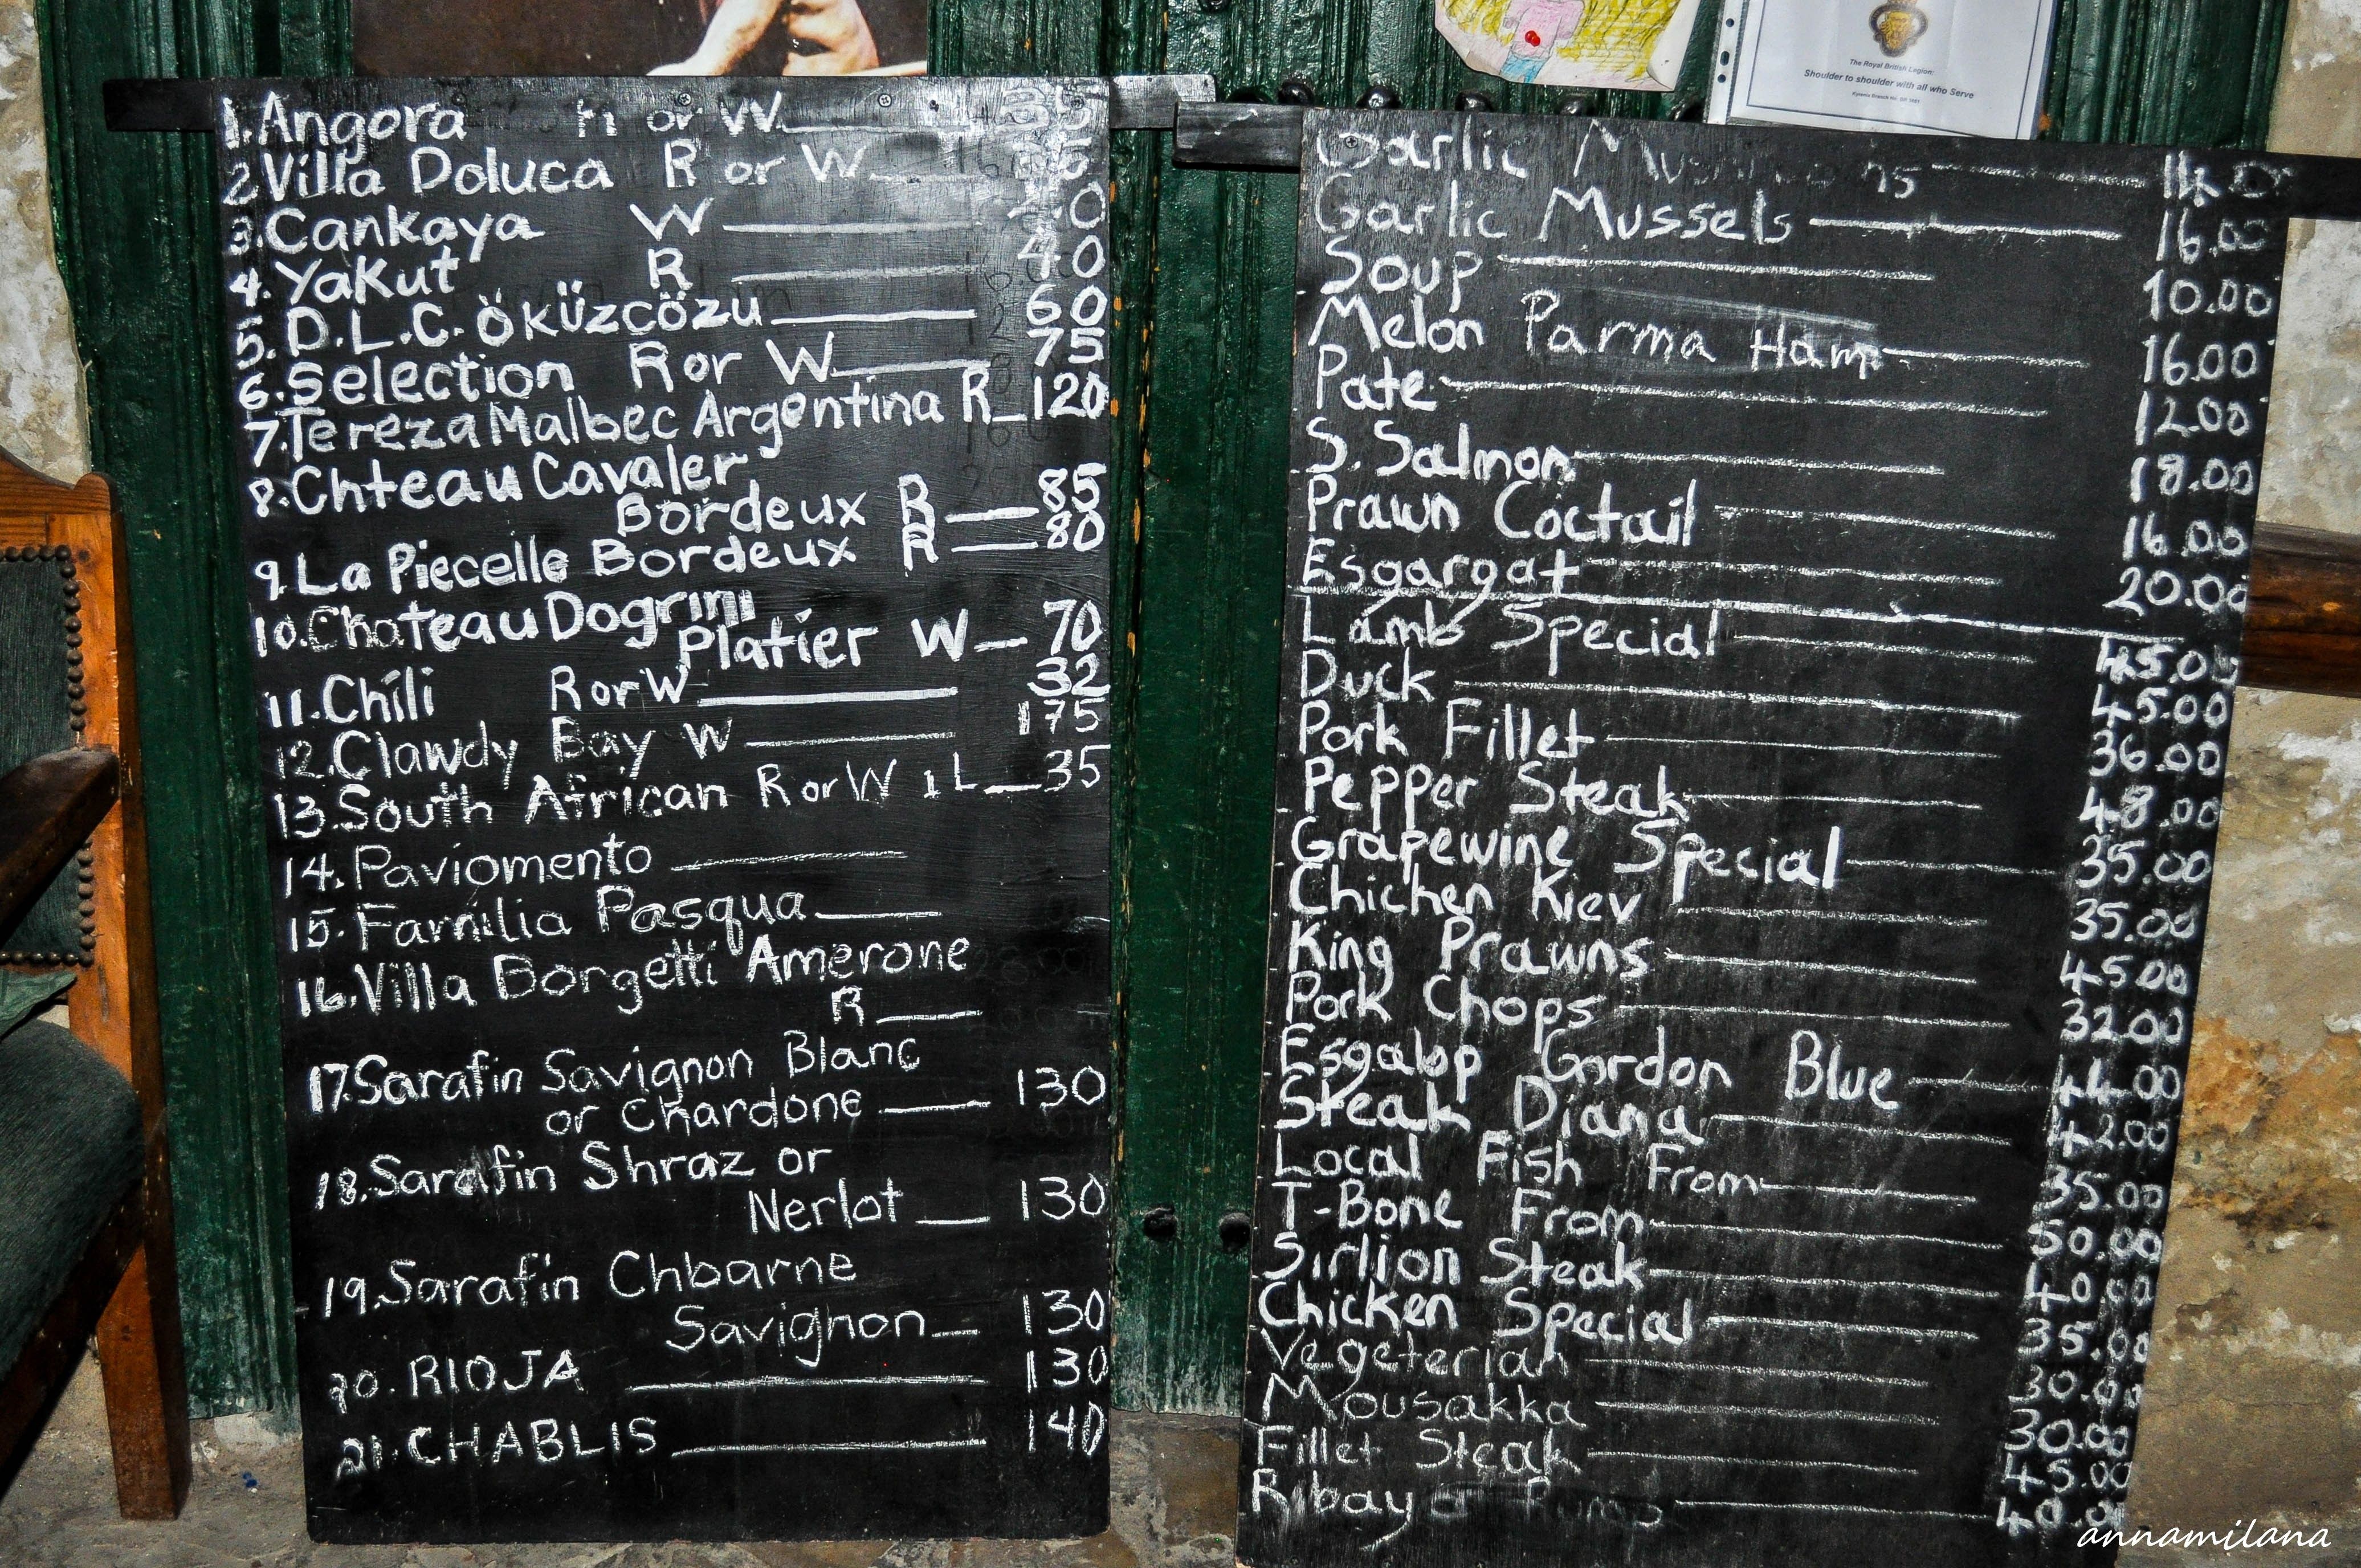 1. Angora R or W 35
2 Villa Doluca R or W
3. Cankaya W 40
4. Yakut R 40
5. D.L.C. ÖKÜZGÖZU 60
6. Selection R or W 75
7. Tereza Malbec Argentina R 120
8. Chteau Cavaler
Bordeux R 85
9. La Piecelle Bordeux R 80
10. Chateau Dogrini
Platier W 70
11. Chili R or W 32
12. Clawdy Bay W 175
13. South African R or W 1 L 35
14. Paviomento
15. Familia Pasqua
16. Villa Borgetti Amerone
R
17. Sarafin Savignon Blanc
or Chardone 130
18. Sarafin Shraz or
Nerlot 130
19. Sarafin Chbarne
Savighon 130
20. RIOJA 130
21. CHABLIS 140
The Royal British Legion:
Shoulder to shoulder with all who Serve
Garlic Mushrooms 14.00
Garlic Mussels 16.00
Soup 10.00
Melon Parma Ham 16.00
Pate 12.00
S. Salmon 18.00
Prawn Coctail 16.00
Esgargat 20.00
Lamb Special 45.00
Duck 45.00
Pork Fillet 36.00
Pepper Steak 48.00
Grapewine Special 35.00
Chicken Kiev 35.00
King Prawns 45.00
Pork Chops 32.00
Esgalop Gordon Blue 44.00
Steak Diana 42.00
Local Fish From 35.00
T-Bone From 50.00
Sirlion Steak 40.00
Chicken Special 35.00
Vegeterian 30.00
Mousakka 30.00
Fillet Steak 45.00
Ribay 40.00
annamilana